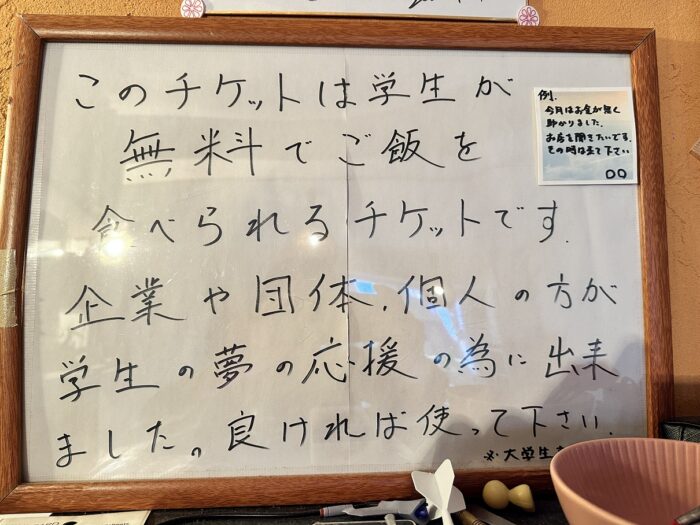 このチケットは学生が
無料でご飯を
食べられるチケットです.
企業や団体,個人の方が
学生の夢の応援の為に出来
ました。良ければ使って下さい.
※大学生
例.
今月はお金が無く
助かりました.
お店を開きたいです.
その時は来て下さい
○○